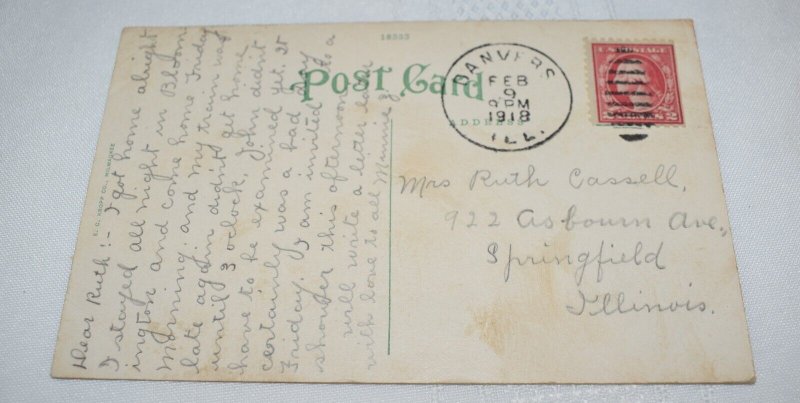 18535
Post Card
ADDRESS
E. C. KROPP CO., MILWAUKEE
DANVERS
FEB
9
PM
1918
ILL.
U.S. POSTAGE
2 2
Mrs Ruth Cassell,
922 Osbourn Ave.,
Springfield
Illinois.
Dear Ruth:- I got home alright
I stayed all night in Bloom
ington and come home Friday
morning and my train was
late again didn't get home
until 3 oclock, John didn't
have to be examined yet. It
certainly was a bad day
Friday. I am invited to a
shower this afternoon
will write a letter later
with love to all Minnie